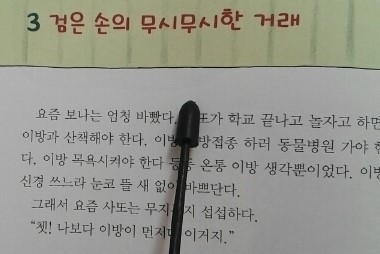 3 검은 손의 무시무시한 거래
요즘 보나는 엄청 바빴다. 가 학교 끝나고 놀자고 하면
이방과 산책해야 한다. 하러 동물병원 가야 한
다. 이방 목욕시켜야 한다 등등 온통 이방 생각뿐이었다. 이방
신경 쓰느라 눈코 뜰 새 없이 바쁘단다.
그래서 요즘 사또는 섭섭하다.
“쳇! 나보다 이방이 먼저다 이거지.”